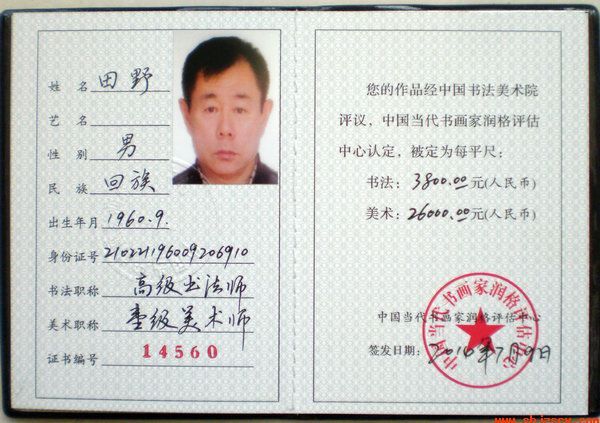 姓名 田野
艺名
性别 男
民族 回族
出生年月 1960.9.
身份证号 210221196009206910
书法职称 高级书法师
美术职称 壹级美术师
证书编号 14560
您的作品经中国书法美术院
评议，中国当代书画家润格评估
中心认定，被定为每平尺：
书法：3800.00元(人民币)
美术：26000.00元(人民币)
中国当代书画家润格评估中心
签发日期：2010年7月9日
中国当代书画家润格评估中心